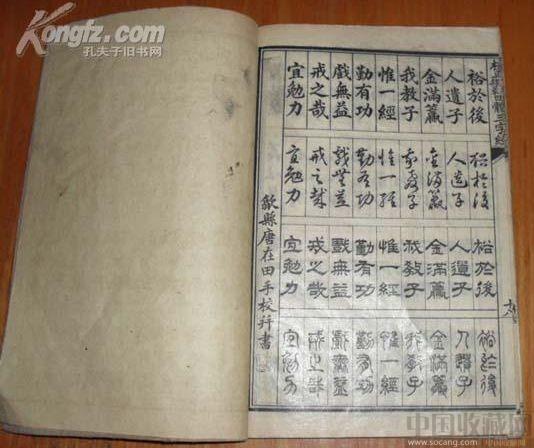 Kongfz.com
孔夫子旧书网
裕於後
人遺子
金滿籯
我教子
惟一經
勤有功
戲無益
戒之哉
宜勉力
裕於後
人遺子
金滿籯
我教子
惟一經
勤有功
戲無益
戒之哉
宜勉力
裕於後
人遺子
金滿籯
我教子
惟一經
勤有功
戲無益
戒之哉
宜勉力
裕於後
人遺子
金滿籯
我教子
惟一經
勤有功
戲無益
戒之哉
宜勉力
歙縣唐在田手校并書
中国收藏网
www.socang.com